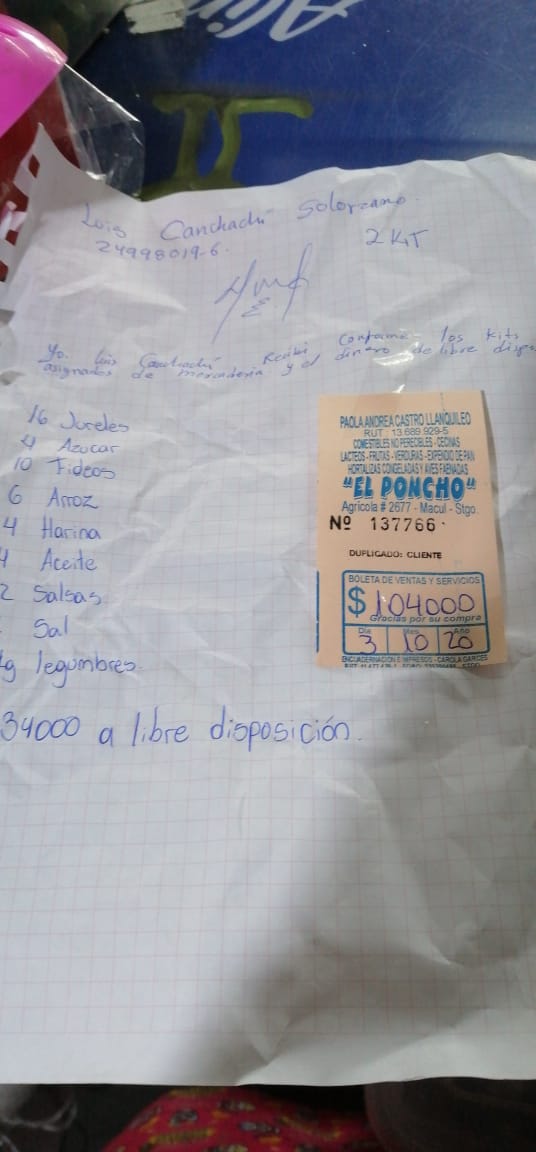 Luis Canchachí Solorzano.
24998019-6.
2 KIT
Yo. Luis Canchachí Recibi Conforme los kits
asignados de mercaderia y el dinero de libre dispo
16 Jureles
4 Azucar
10 Fideos
6 Arroz
4 Harina
4 Aceite
2 Salsas
Sal
legumbres.
34000 a libre disposición.
PAOLA ANDREA CASTRO LLANQUILEO
RUT : 13.689.929-5
COMESTIBLES NO PERECIBLES - CECINAS
LACTEOS - FRUTAS - VERDURAS - EXPENDIO DE PAN
HORTALIZAS CONGELADAS Y AVES FAENADAS
"EL PONCHO"
Agrícola # 2677 - Macul - Stgo.
Nº 137766
DUPLICADO: CLIENTE
BOLETA DE VENTAS Y SERVICIOS
$ 104000
Gracias por su compra
Día Mes Año
3 10 20
ENCUADERNACION E IMPRESOS - CAROLA GARCES